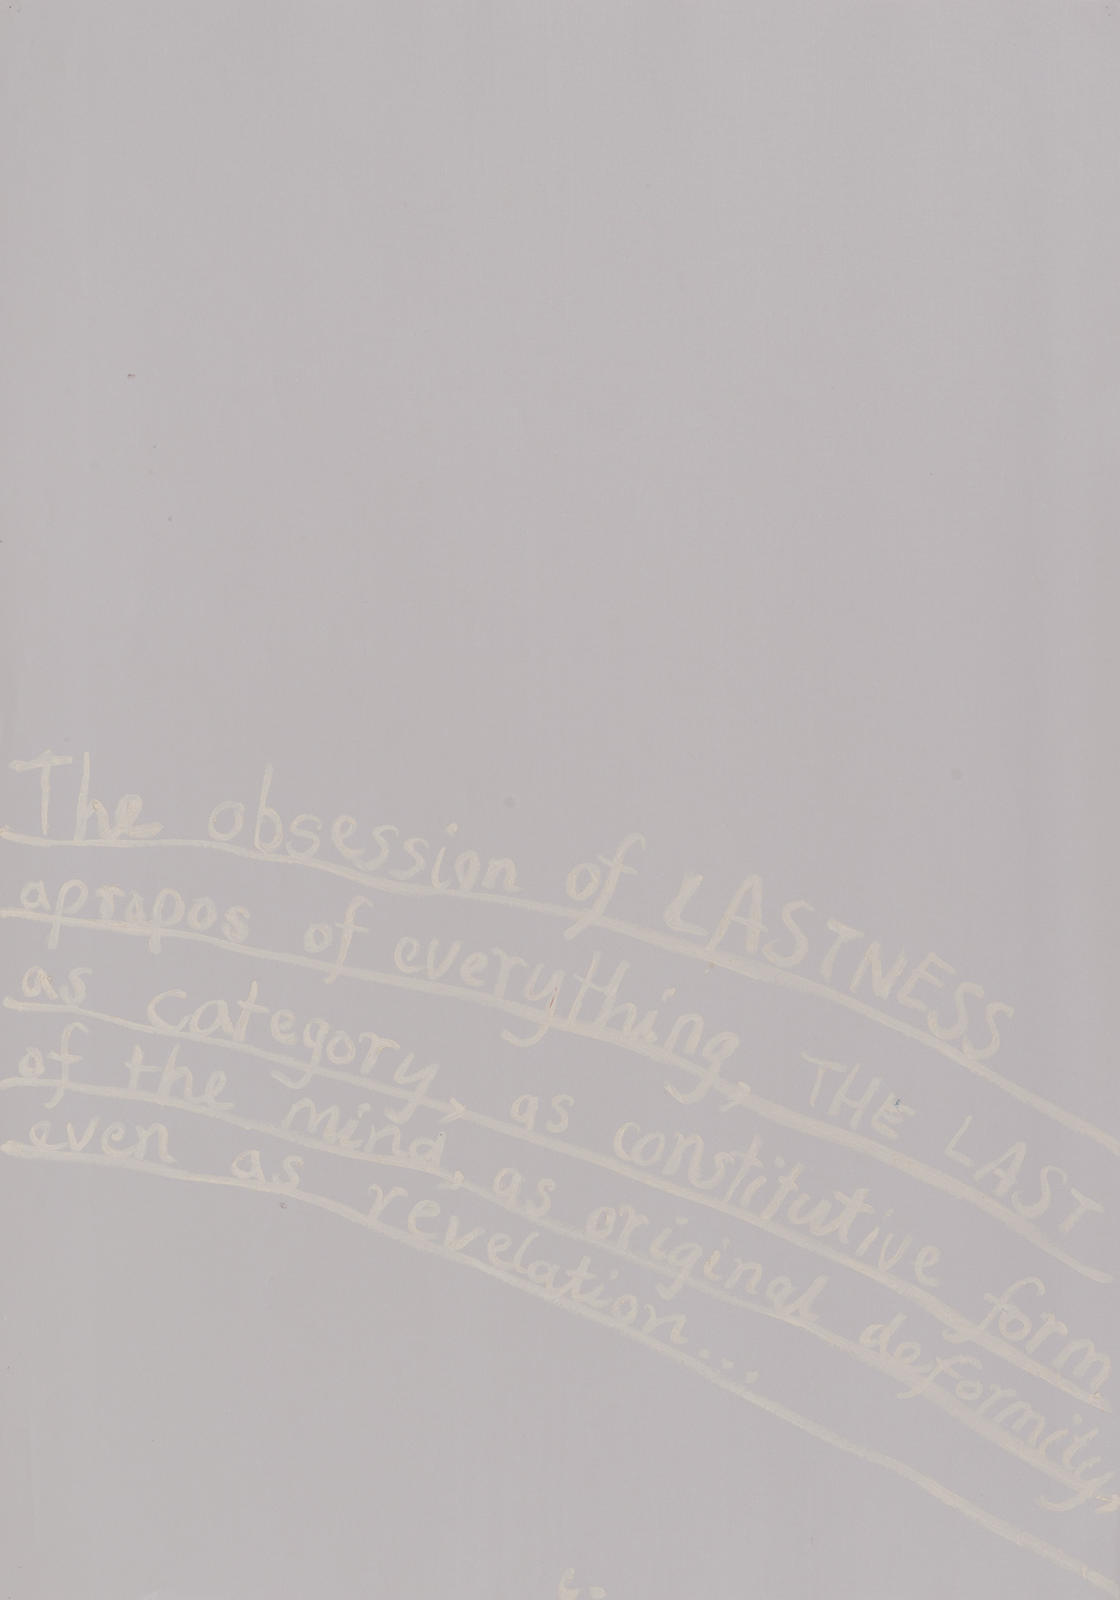 The obsession of LASTNESS
apropos of everything, THE LAST
as category, as constitutive form
of the mind, as original deformity,
even as revelation...